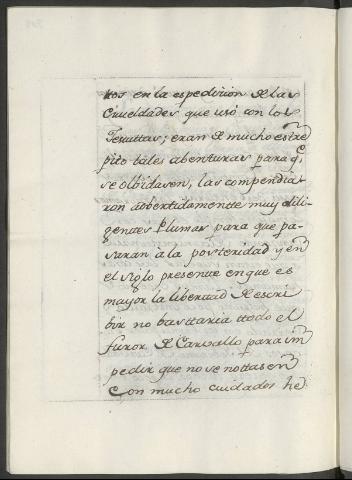 tros en la espedicion de las
Crueldades que usó con los
Jesuittas; eran de mucho estre
pito tales abenturas para q.e
se olbidasen, las compendia-
ron adbertidamentte muy dili-
genttes Plumas para que pa-
saran à la posteridad y en
el siglo presentte en que es
mayor la liberttad de escri
bir no basttaria ttodo el
furor de Carvallo para im
pedir que no se nottasen
Con mucho cuidados he